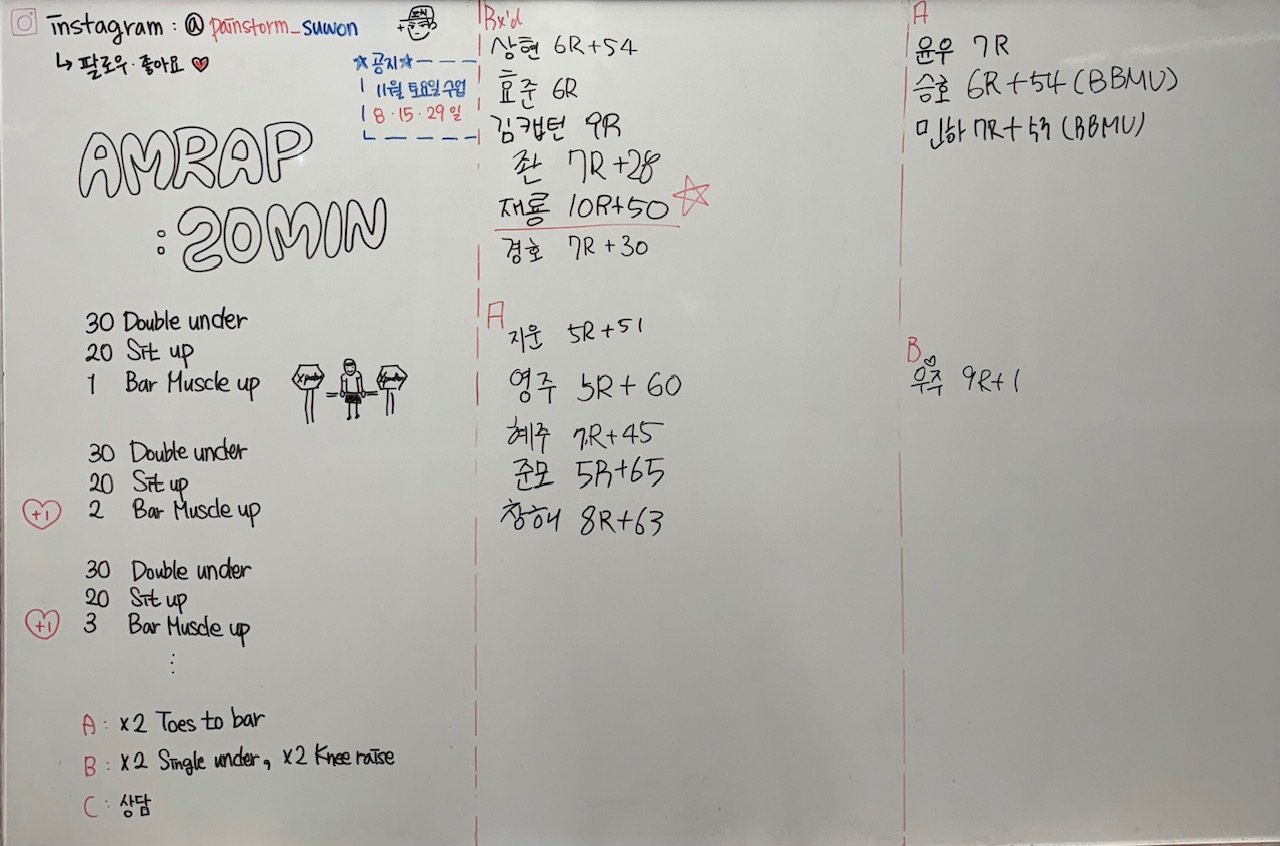 instagram : @ painstorm_suwon
↳ 팔로우·좋아요 ♥
☆공지☆
11월 토요일 수업
8·15·29일
AMRAP
:20MIN
30 Double under
20 Sit up
1 Bar Muscle up
30 Double under
20 Sit up
+1 2 Bar Muscle up
30 Double under
20 Sit up
+1 3 Bar Muscle up
⋮
A : x2 Toes to bar
B : x2 Single under, x2 Knee raise
C : 상담
Rx'd
상현 6R+54
효준 6R
김캡턴 9R
좐 7R+28
재룡 10R+50 ☆
경호 7R+30
A
지운 5R+51
영주 5R+60
혜주 7R+45
준모 5R+65
창해 8R+63
A
윤우 7R
승호 6R+54 (BBMU)
민하 7R+53 (BBMU)
B
우주 9R+1